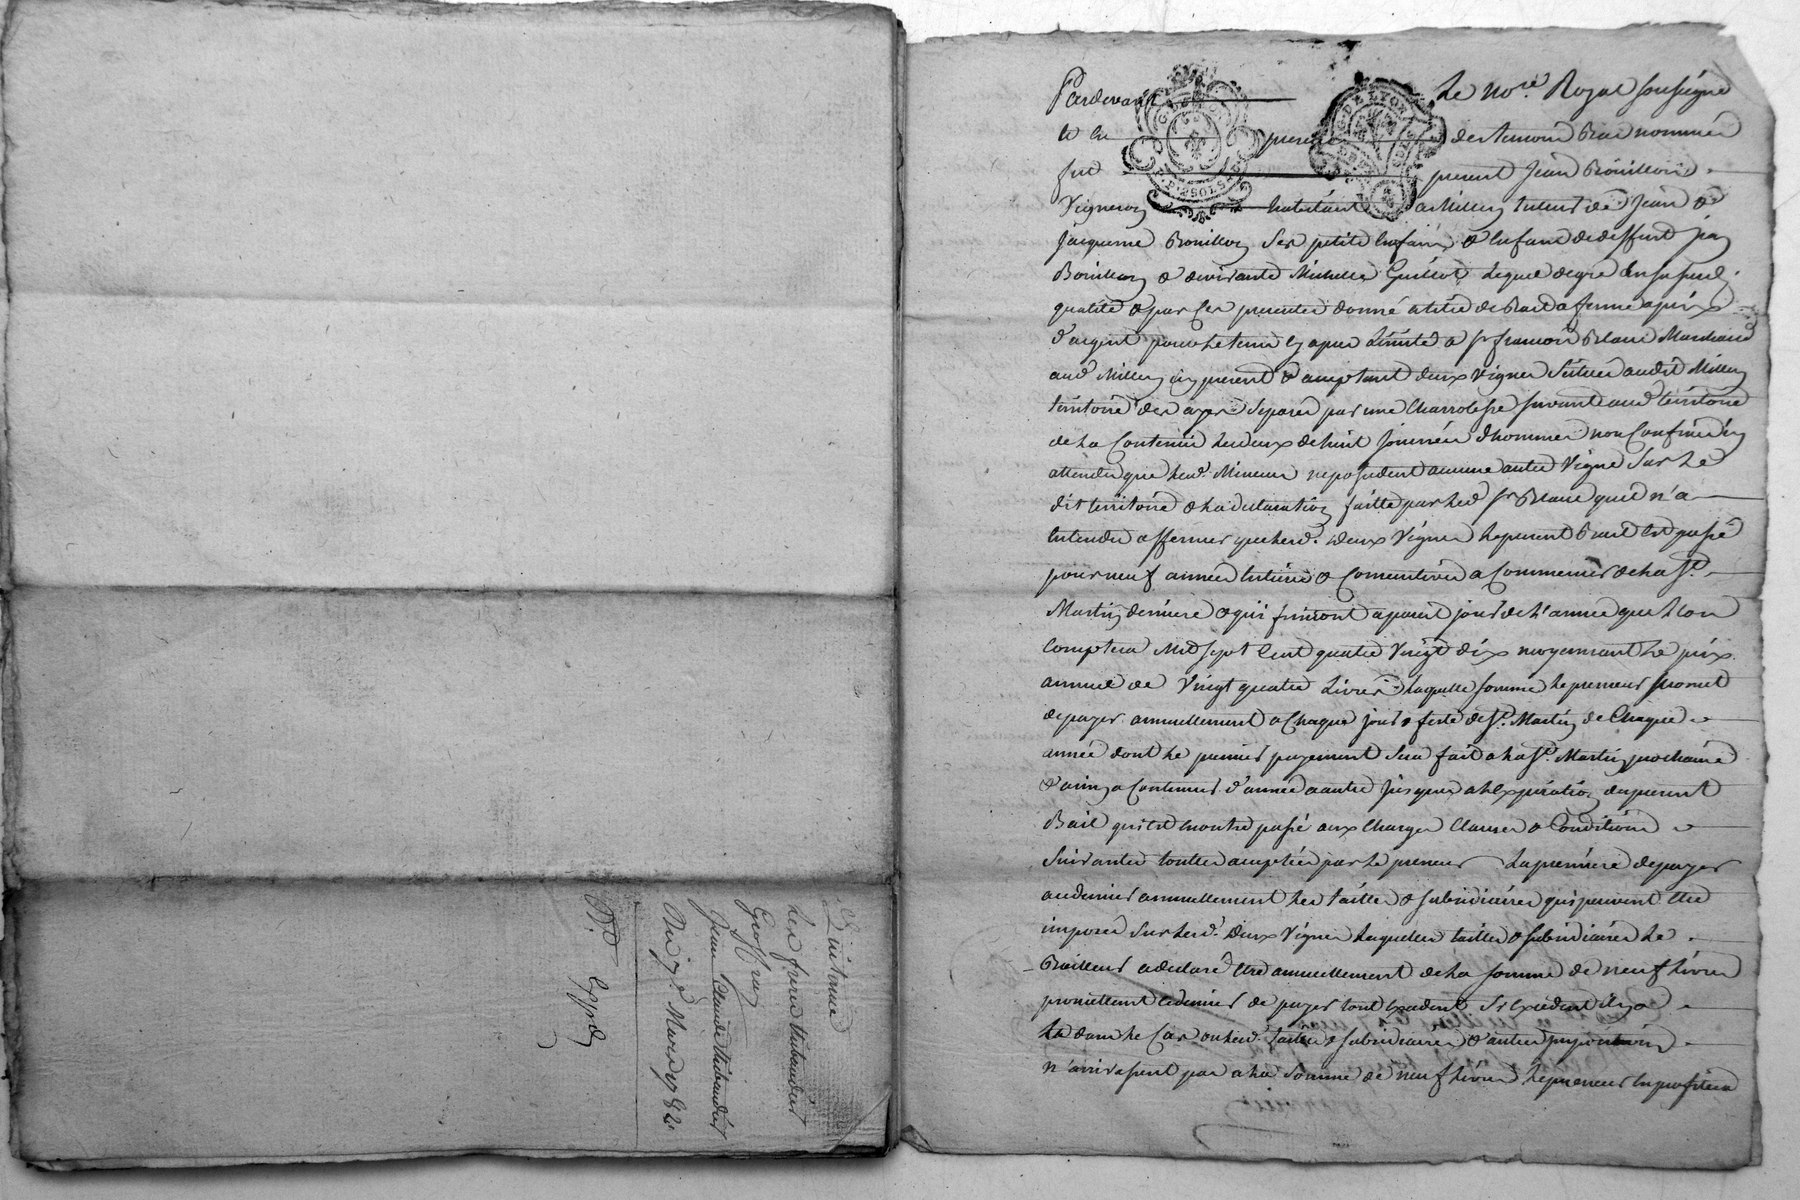 Quittance
les freres thibaudier
Geoffray
Jean Claude thibaudier
Du 7e. Mars 1782
Expéd
Pardevant le nore. Royal soussigné
et en presence des temoins bas nommés
fut present Jean Bouillon
Vigneron habitant a Millery tuteur de Jean &
Jacqueme Bouillon ses petits enfans & enfans de deffunt Jean
Bouillon & de vivante Michelle Guillot lequel de gre en sa susd.
qualité & par ces presentes donné a titre de Bail a ferme a prix
d'argent a sr. francois Blanc Marchand
aud. Millery icy present & acceptant deux vignes situées audit Millery
territoire des ayes separés par une Charroteste suivante aud territoire
de la Contenue les deux de huit journées d'hommes non Confinées
attendu que lesd. Mineurs ne possedent aucune autre vigne sur le
dit territoire & la declaration faitte par led. sr Blanc qu'il n'a
entendu affermer que lesd. deux Vignes le present Bail est passé
pour neuf années entieres & consecutives a Commencer de la St.
Martin derniere & qui finiront a pareil jour de l'année que l'on
Comptera Mil sept Cent quatre Vingt dix moyennant le prix
annuel de Vingt quatre Livres laquelle somme le preneur promet
de payer annuellement a Chaque jour & feste de St. Martin de Chaque
année dont le premier payement sera fait a la St. Martin prochaine
& ainsy a Continuer d'année a autre jusques a l'expiration du present
Bail qui est en outre passé aux Charges Clauses & Conditions
suivantes toutes acceptées par le preneur La premiere de payer
annuellement les tailles & subsidiaires qui peuvent etre
imposés sur lesd. deux Vignes lesquelles tailles & subsidiaires le
Bailleur a declaré etre annuellement de la somme de neuf livres
promettant de payer tout excedent si excedent il y a
& dans le Cas ou lesd. tailles & subsidiaires & autres impositions
n'arrivasent pas a la Somme de neuf livres le preneur en profitera